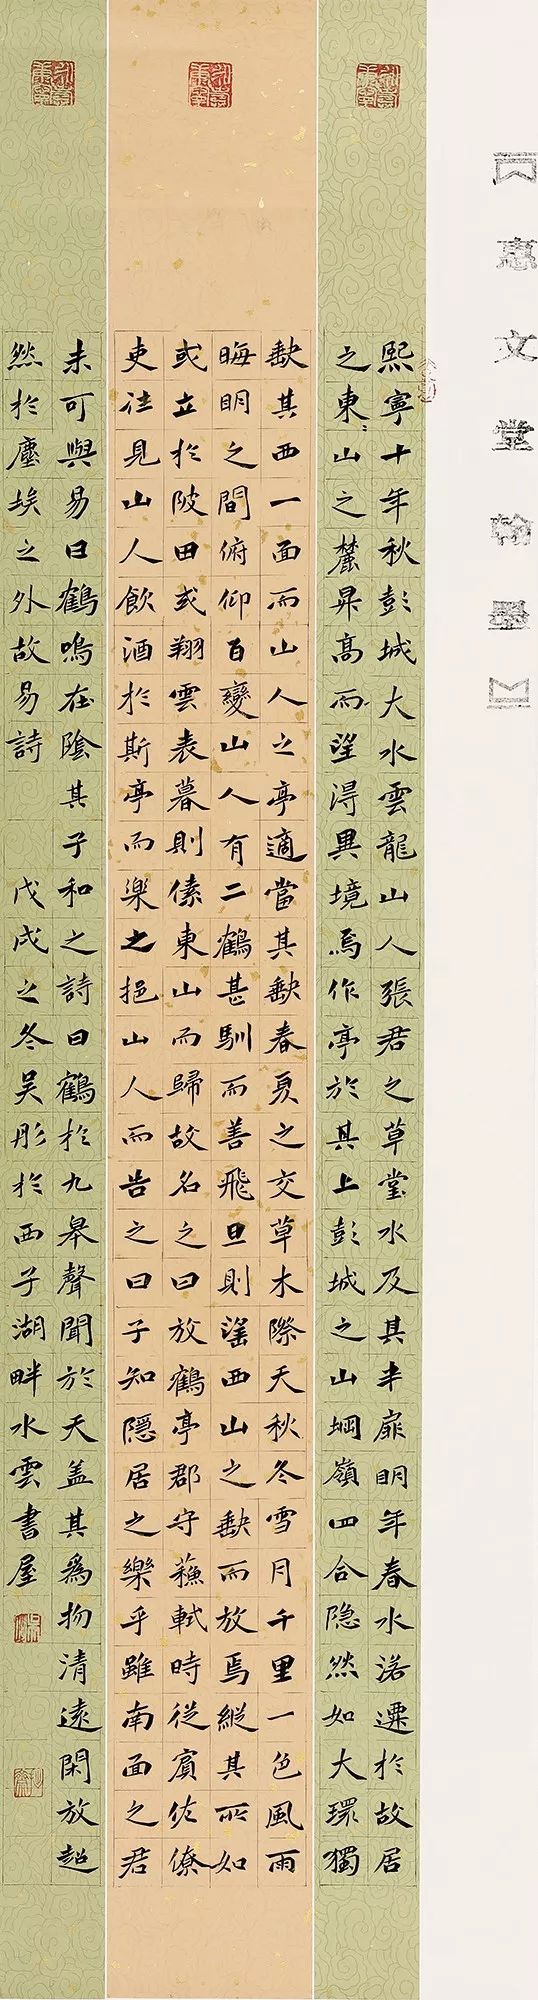 惠文堂翰墨
熙寧十年秋彭城大水雲龍山人張君之草堂水及其半扉明年春水落遷於故居
之東〻山之麓昇高而望得異境焉作亭於其上彭城之山堈嶺四合隐然如大環獨
缺其西一面而山人之亭適當其缺春夏之交草木際天秋冬雪月千里一色風雨
晦明之間俯仰百變山人有二鶴甚馴而善飛旦則望西山之缺而放焉縱其所如
或立於陂田或翔雲表暮則傃東山而歸故名之曰放鶴亭郡守蘇軾時從賓佐僚
吏往見山人飲酒於斯亭而樂之挹山人而告之曰子知隱居之樂乎雖南面之君
未可與易曰鶴鳴在陰其子和之詩曰鶴於九皋聲聞於天盖其爲物清遠閑放超
然於塵埃之外故易詩 戊戌之冬吴彤於西子湖畔水雲書屋